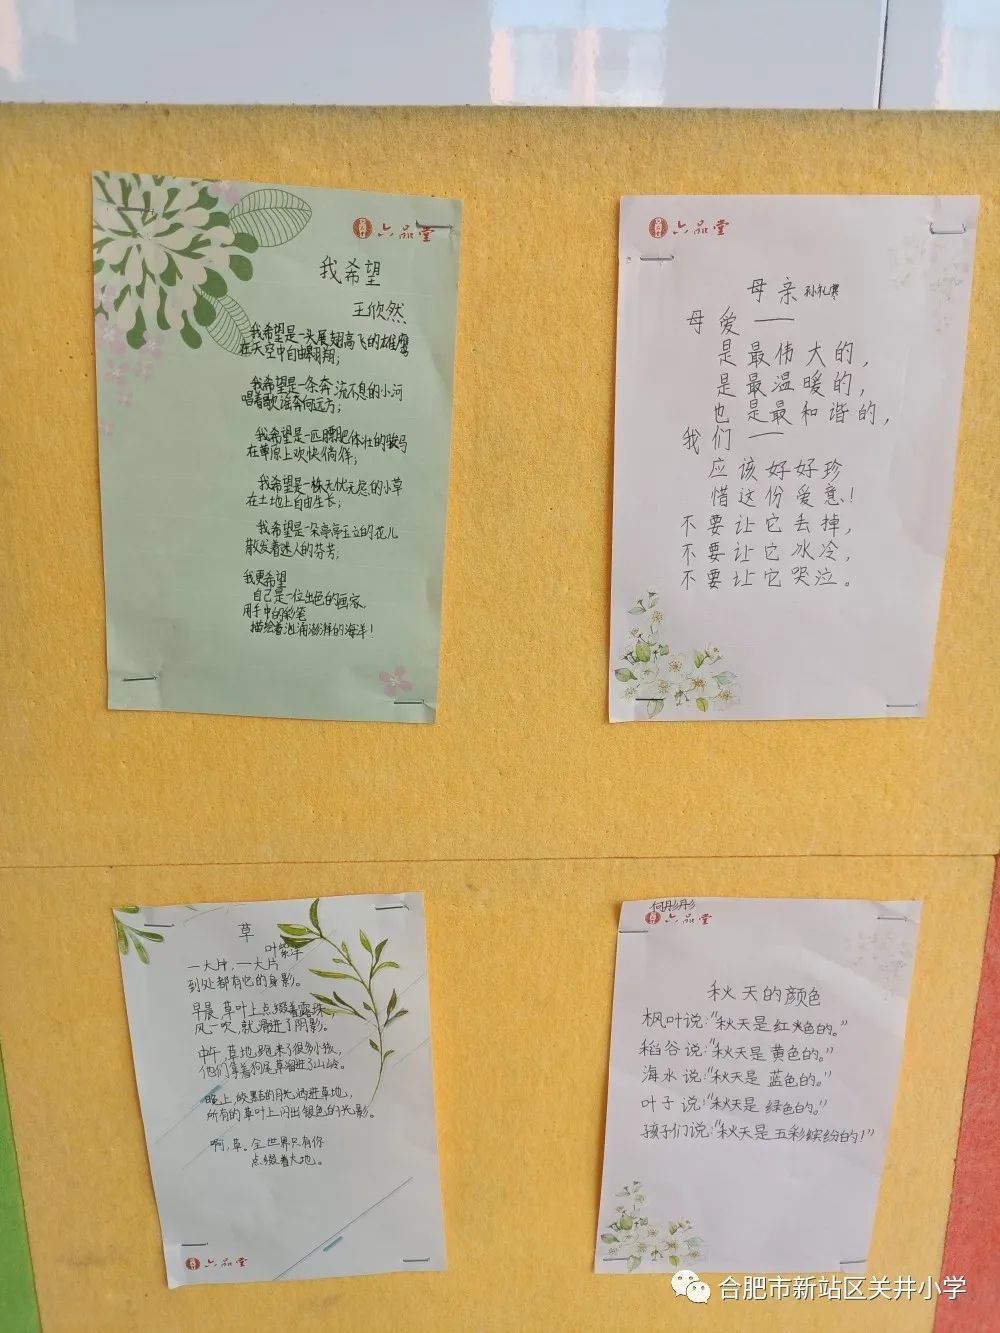 六品堂
我希望
王欣然
我希望是一头展翅高飞的雄鹰
在天空中自由翱翔；
我希望是一条奔流不息的小河
唱着歌谣奔向远方；
我希望是一匹膘肥体壮的骏马
在草原上欢快徜徉；
我希望是一株无忧无虑的小草
在土地上自由生长；
我希望是一朵亭亭玉立的花儿
散发着迷人的芬芳；
我更希望
自己是一位出色的画家，
用手中的彩笔
描绘着汹涌澎湃的海洋！
六品堂
母亲 孙礼寒
母爱——
是最伟大的，
是最温暖的，
也是最和谐的，
我们——
应该好好珍
惜这份爱意！
不要让它丢掉，
不要让它冰冷，
不要让它哭泣。
草
叶紫洋
一大片，一大片
到处都有它的身影。
早晨，草叶上点缀着露珠，
风一吹，就滑进了阴影。
中午，草地跑来了很多小孩，
他们拿着狗尾草溜进了山岭。
晚上，皎洁的月光洒进草地，
所有的草叶上闪出银色的光影。
啊，草。全世界只有你
点缀着大地。
六品堂
何彤彤
六品堂
秋天的颜色
枫叶说：“秋天是红火色的。”
稻谷说：“秋天是黄色的。”
海水说：“秋天是蓝色的。”
叶子说：“秋天是绿色的。”
孩子们说：“秋天是五彩缤纷的！”
合肥市新站区关井小学